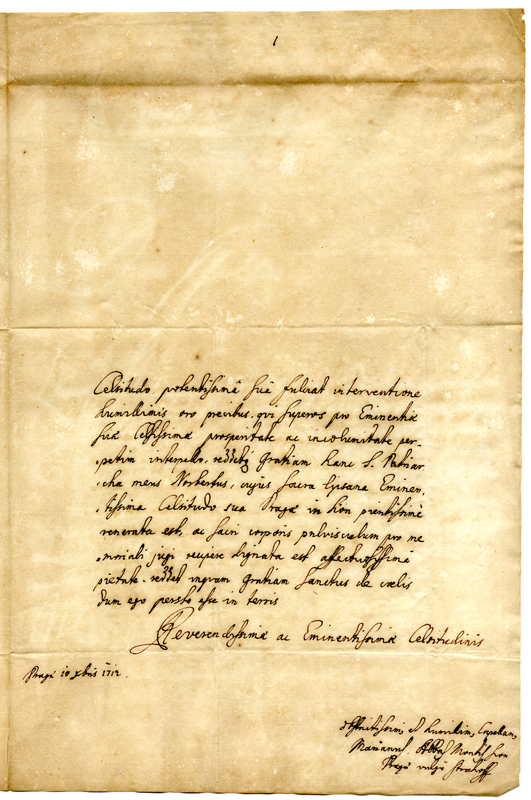 1
Celsitudo potentissimâ suâ fulciat interventione
humillimis oro precibus, qui superos pro Eminentiæ
suæ Celsissimæ prosperitate ac incolumitate per-
-petim interpello, reddetq gratiam hanc S. Patriar
-cha meus Norbertus, cujus sacra Lipsana Eminen,
-tissima Celsitudo sua Pragæ in Sion pientissimè
venerata est, ac sacri corporis pulvisculum pro me
-moriali jugi recipere dignata est affectuosissimâ
pietate. reddet inquam gratiam Sanctus de cælis
dum ego persto esse in terris
Reverendissimæ ac Eminentissimæ Celsitudinis
Pragæ 10 xbris 1712.
et humillim, Capellan,
Marianus Abbas Montis Sion
Pragæ vulgò Strahoff